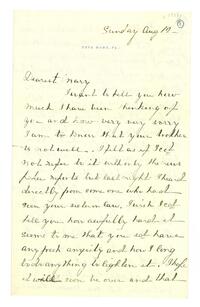 Sunday Aug 19 —
Dearest Mary
I want to tell you how
much I have been thinking of
you and how very very sorry
I am to know that your mother
is not well. I felt as if I cd
not refer to it with only the news
paper reports but last night I heard
directly from some one who had
seen your sister in law. I wish I cd
tell you how awfully hard it
seems to me that you sd have
any fresh anxiety and how I long
to do anything to lighten it. I hope
it will soon be over and that